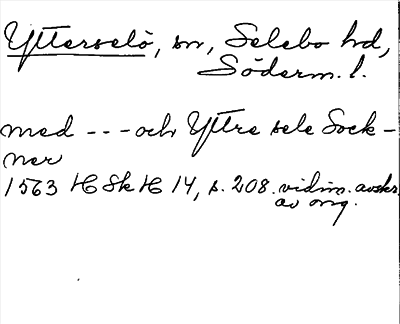 Ytterselö, sn, Selebo hd,
Söderm. l.
med --- och Yttre sele Sock-
ner
1563 HSkH 14, s. 208. vidim. avskr.
av orig.